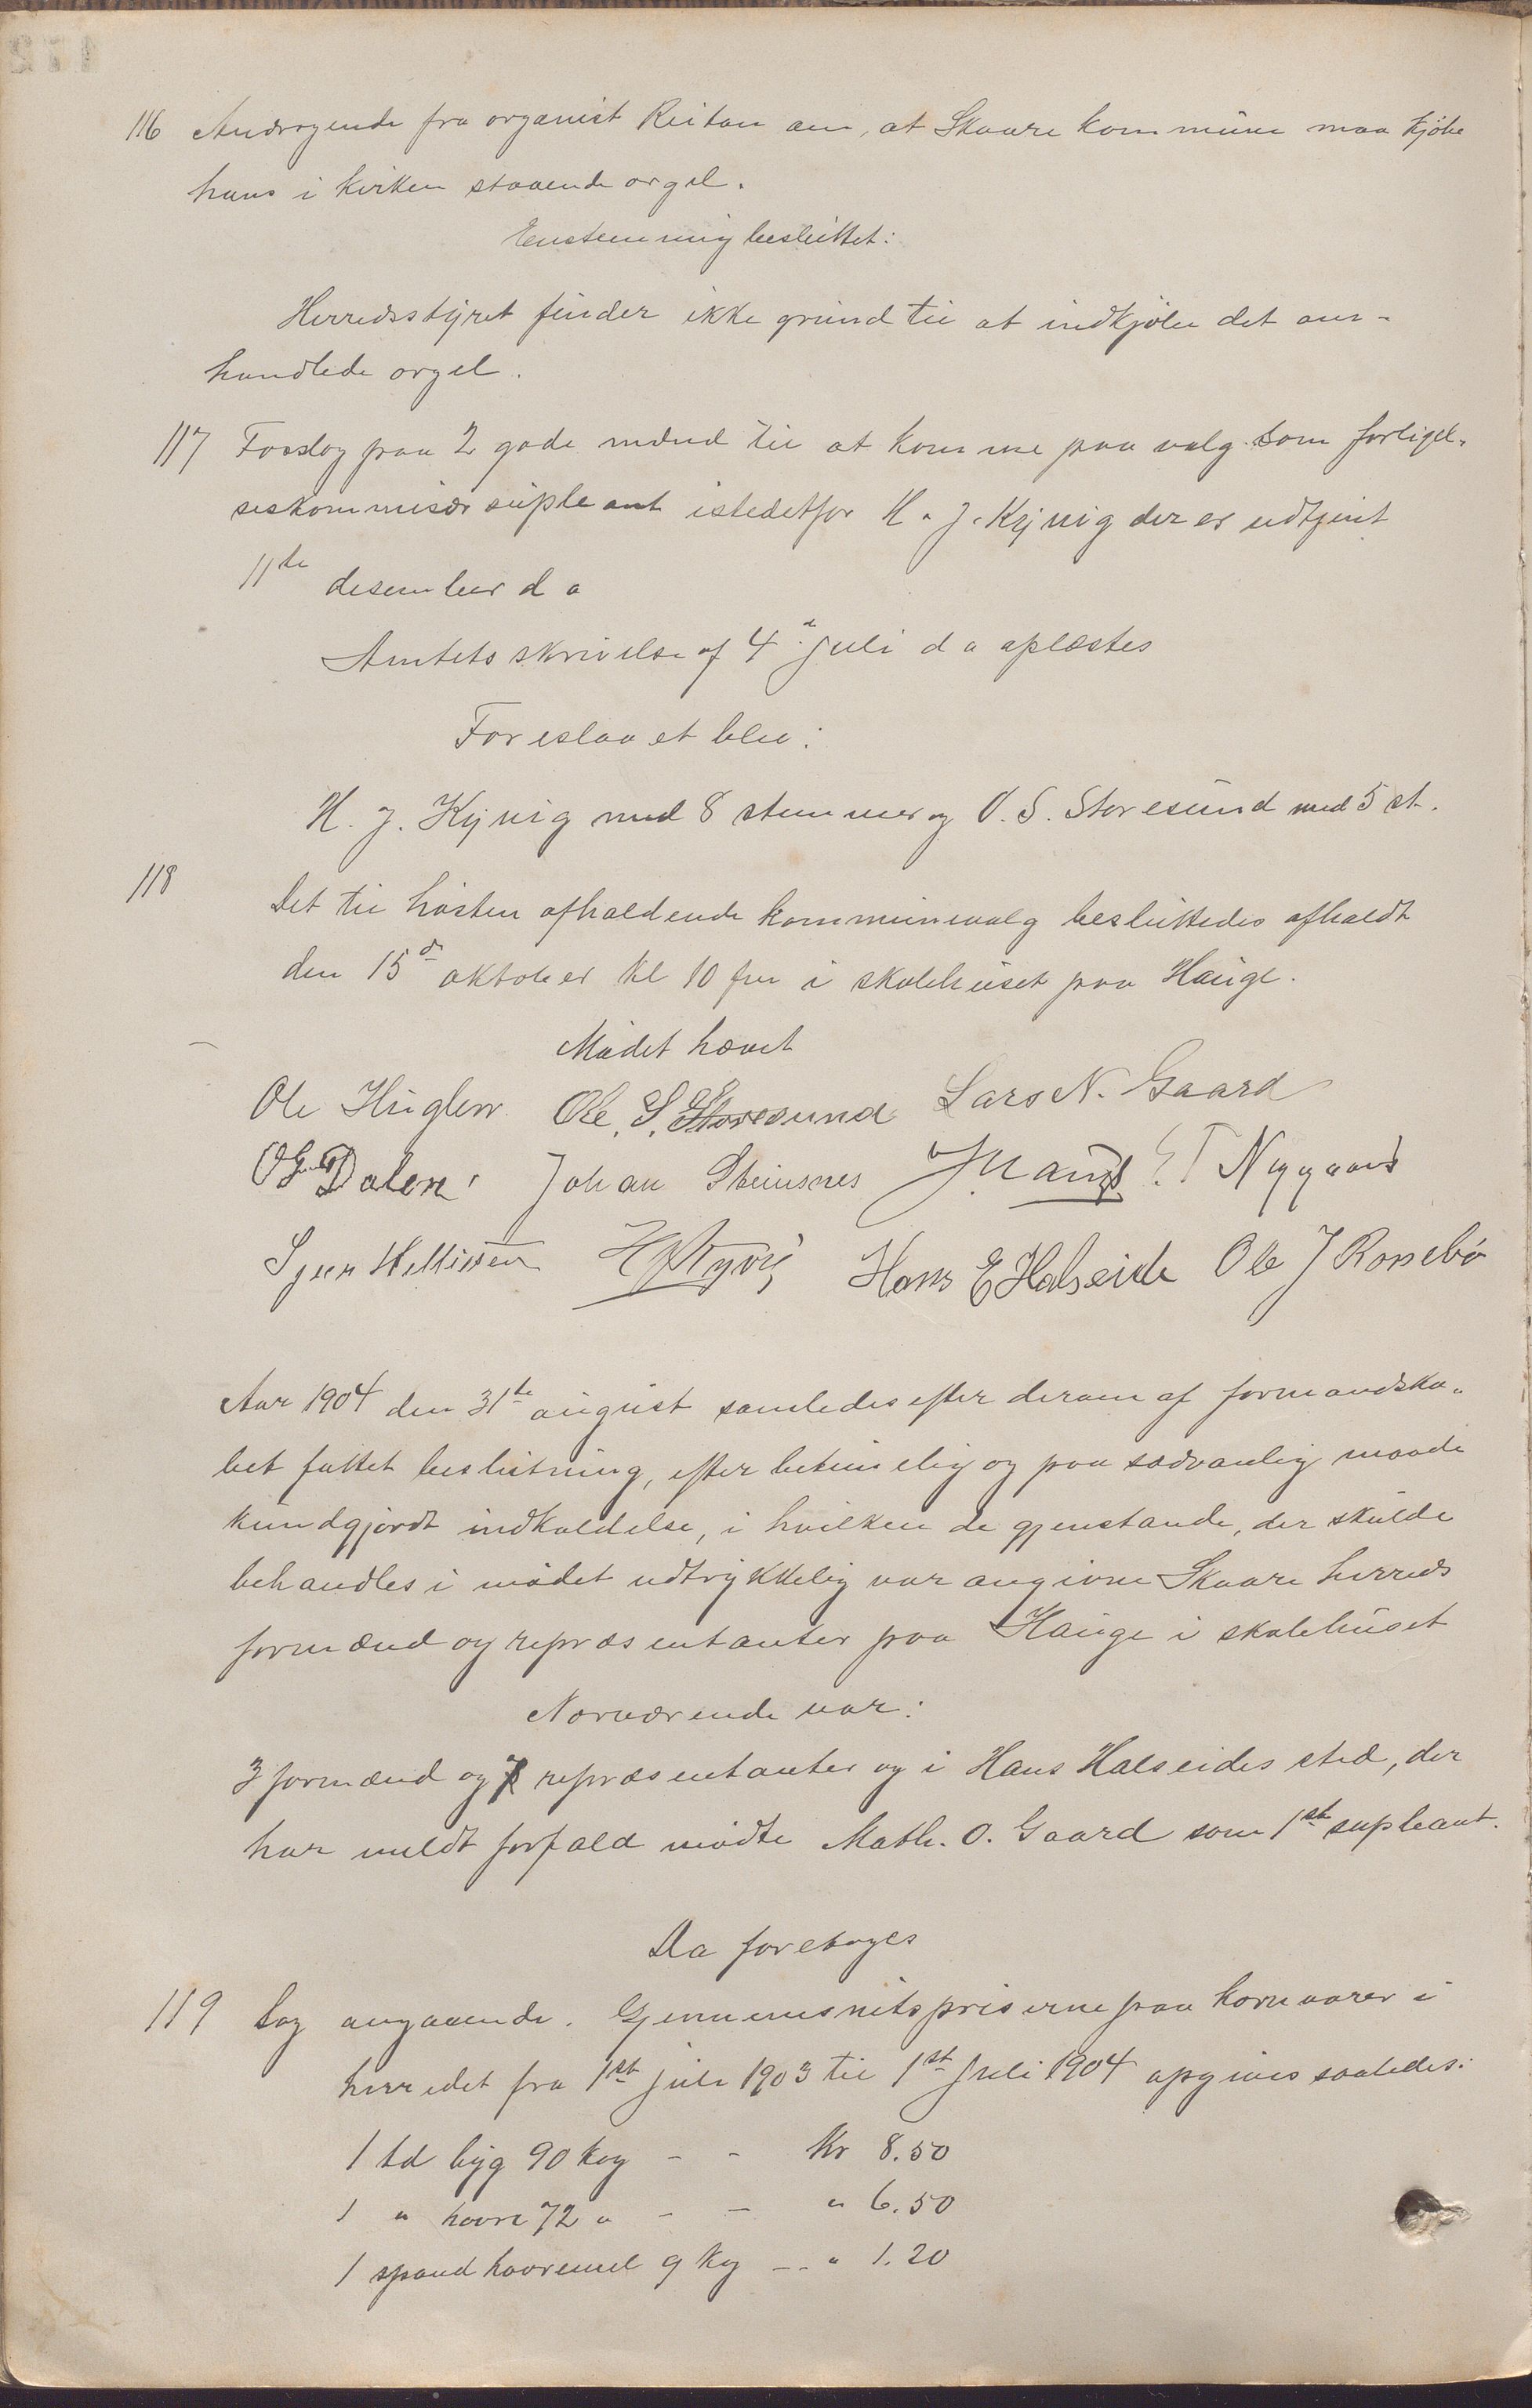 116 Andragende fra organist Reitan om, at Skaare kommune maa kjöbe
hans i kirken staaende orgel.
Enstemmig besluttet:
Herredsstyret finder ikke grund til at indkjöbe det om-
handlede orgel.
117 Forslag paa 2 gode mænd til at komme paa valg som forligel-
seskommisær supleant istedetfor H. J. Kyvig der er udtjent
11te desember d a
Amtets skrivelse af 4de juli d a oplæstes
Foreslaaet blev:
H. J. Kyvig med 8 stemmer og O. S. Storesund med 5 st.
118 Det til hösten afholdende kommunevalg besluttedes afholdt
den 15de oktober kl 10 fm i skolehuset paa Hauge.
Mödet hævet
Ole Huglen Ole. S. Storesund Lars N. Gaard
Dalen. Johan Steinsnes E. T Nygaard
H J Kyvig Hans E Halseide Ole J Rossebö
Aar 1904 den 31te august samledes efter derom af formandska-
bet fattet beslutning, efter betimelig og paa sædvanlig maade
kundgjordt indkaldelse, i hvilken de gjenstande, der skulde
behandles i mödet udtrykkelig var angivne Skaare herreds
formænd og repræsentanter paa Hauge i skolehuset
Nærværende var:
3 formænd og 7 repræsentanter og i Hans Halseides sted, der
har meldt forfald mödte Math. O. Gaard som 1st supleant.
Da foretoges
119 Sag angaaende. Gjennemsnitspriserne paa kornvarer i
herredet fra 1st juli 1903 til 1st Juli 1904 opgives saaledes:
1 td byg 90 kg - - Kr 8.50
1 " havre 72 " - - " 6.50
1 spand havremel 9 kg - - " 1.20